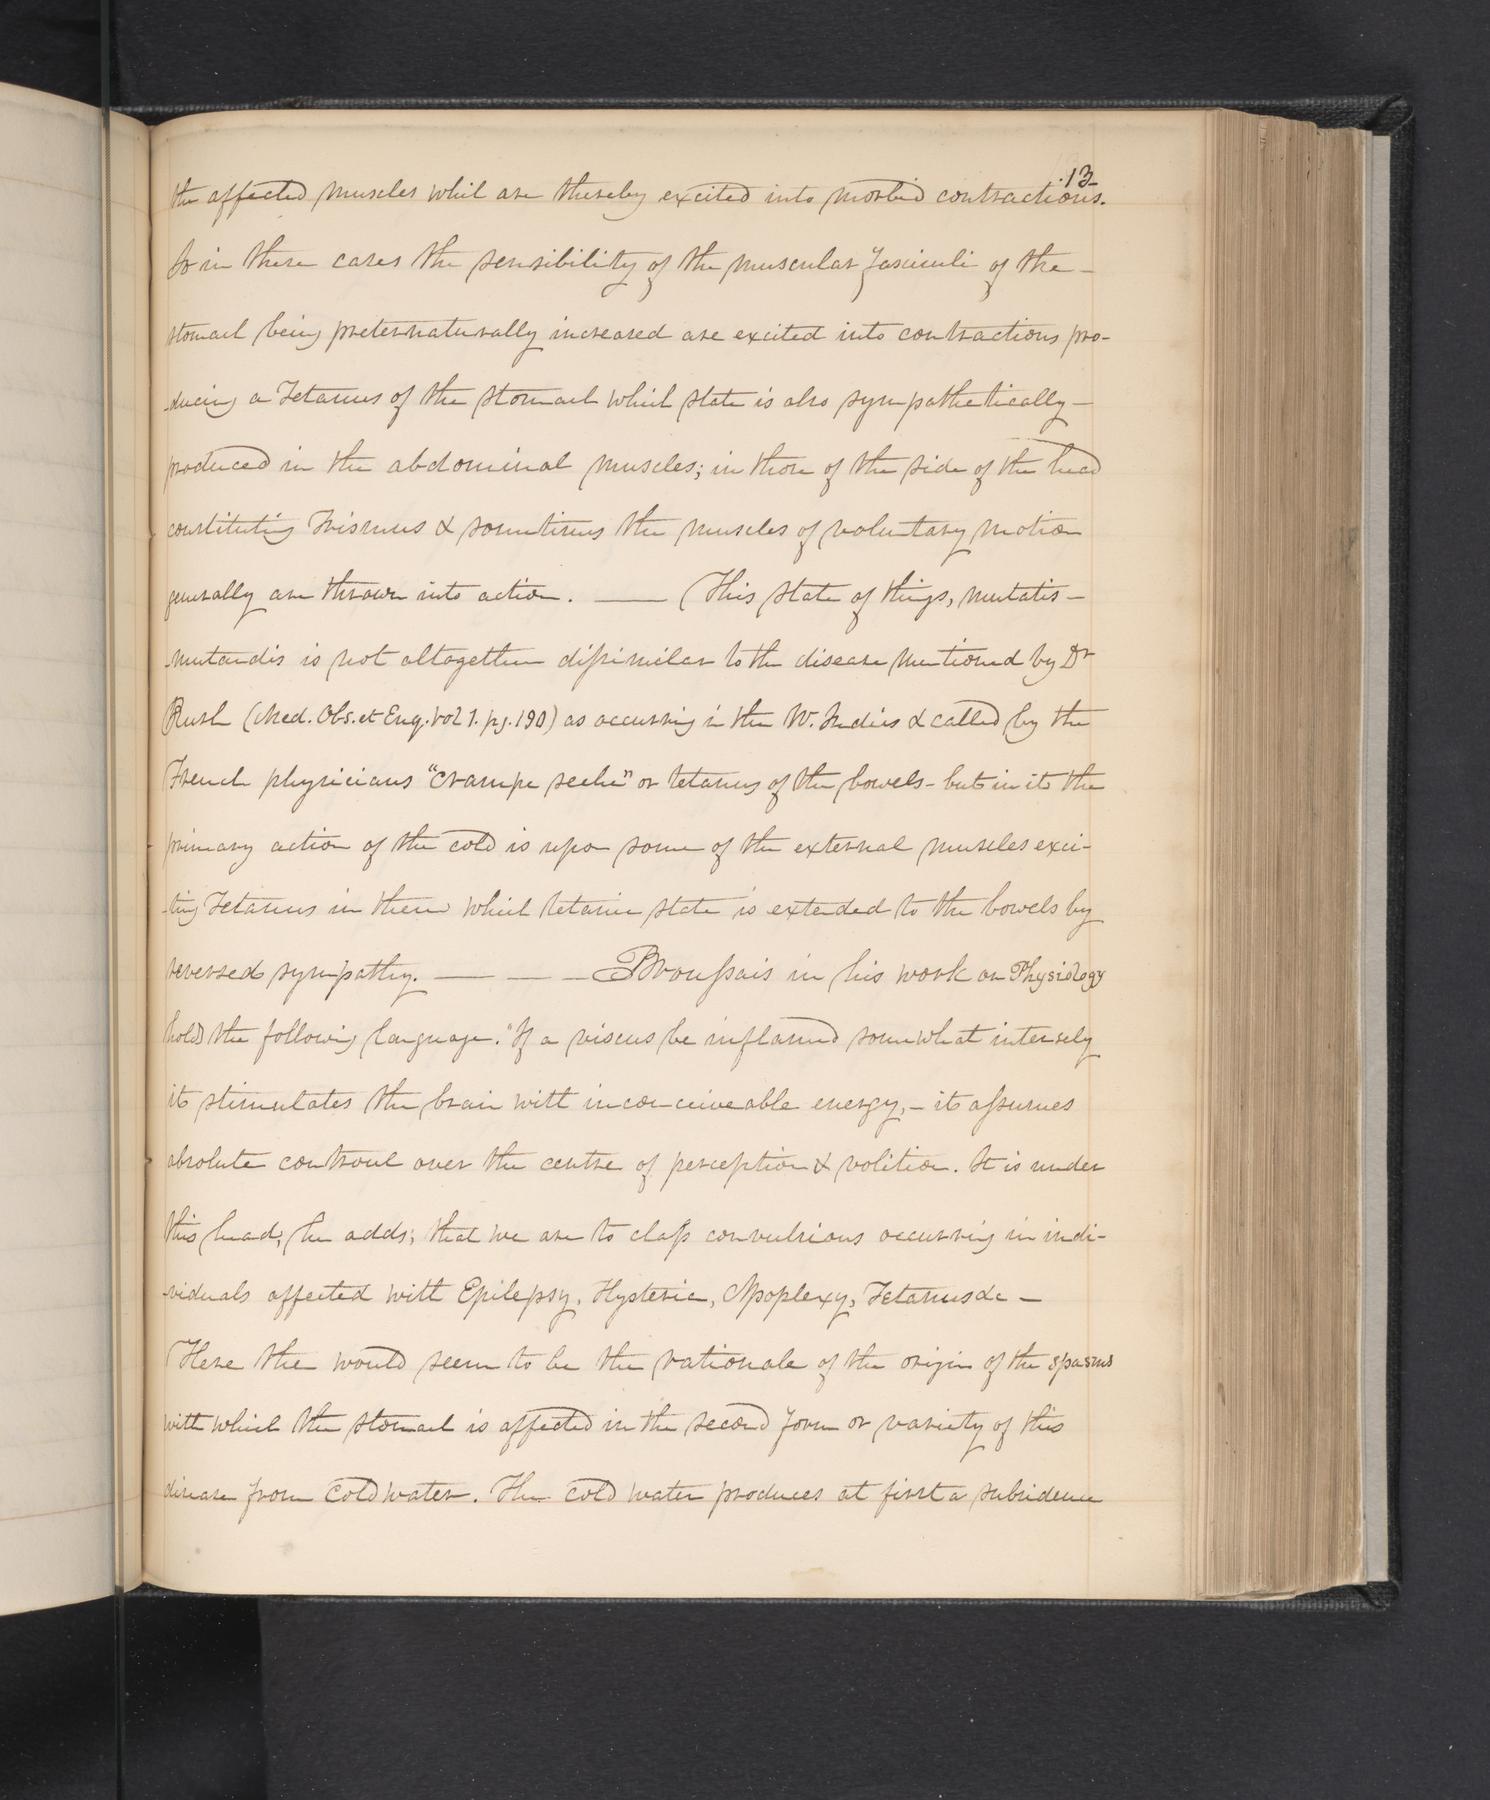 .13
the affected muscles which are thereby excited into morbid contractions.
So in these cases the sensibility of the muscular fasciculi of the -
stomach being preternaturally increased are excited into contractions pro-
-ducing a Tetanus of the stomach which state is also sympathetically -
produced in the abdominal muscles; in those of the side of the head
constituting Trismus & sometimes the muscles of voluntary motion
generally are thrown into action. —— This state of things, mutatis -
-mutandis is not altogether dissimilar to the disease mentioned by Dr
Rush (Med. Obs. et Enq. Vol 1. pg. 190) as occurring in the W. Indies & called by the
French physicians "crampe seche" or tetanus of the bowels - but in it the
primary action of the cold is upon some of the external muscles exci-
-ting Tetanus in them which tetanic state is extended to the bowels by
reversed sympathy. — — — Broussais in his work on Physiology
holds the following language. "If a viscus be inflamed somewhat intensely
it stimulates the brain with inconceiveable energy, - it assumes
absolute controul over the centre of perception & volition. It is under
this head, he adds; that we are to class convulsions occurring in indi-
-viduals affected with Epilepsy, Hysteria, Apoplexy, Tetanus &c -
Here then would seem to be the rationale of the origin of the spasms
with which the stomach is affected in the second form or variety of this
disease from cold water. The cold water produces at first a subsidence